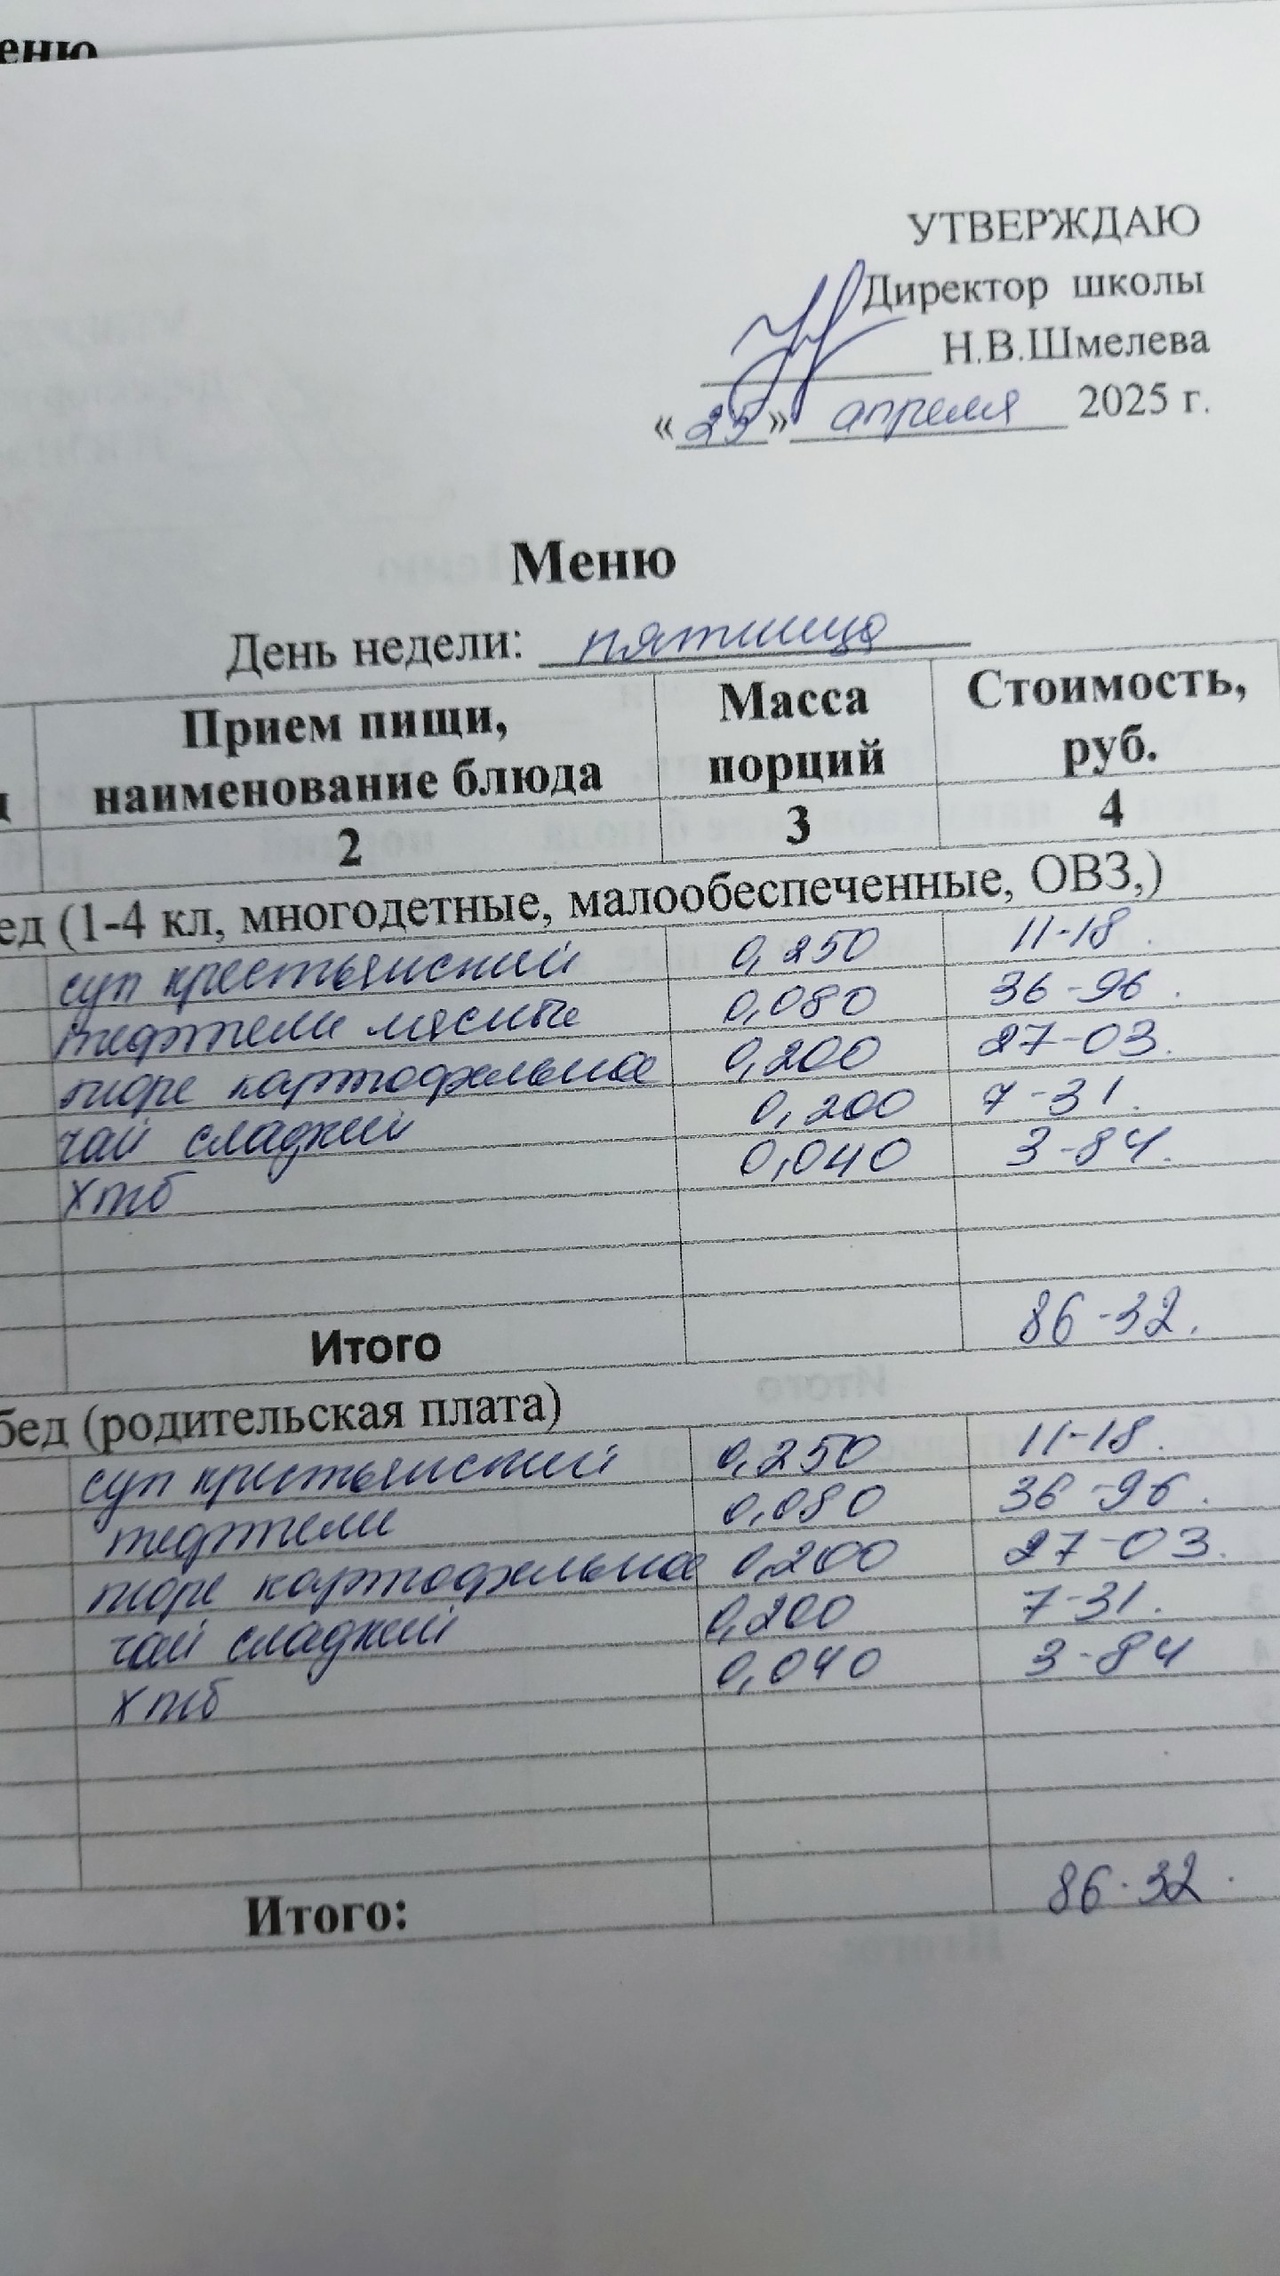 еню
УТВЕРЖДАЮ
Директор школы
Н.В.Шмелева
«25» апреля 2025 г.
Меню
День недели: пятница
Прием пищи, наименование блюда Масса порций Стоимость, руб.
2 3 4
ед (1-4 кл, многодетные, малообеспеченные, ОВЗ,)
суп крестьянский 0,250 11-18.
тефтели мясные 0,080 36-96.
пюре картофельное 0,200 27-03.
чай сладкий 0,200 7-31.
хтб 0,040 3-84.
Итого 86-32.
бед (родительская плата)
суп крестьянский 0,250 11-18.
тефтели 0,080 36-96.
пюре картофельное 0,200 27-03.
чай сладкий 0,200 7-31.
хтб 0,040 3-84
Итого: 86-32.